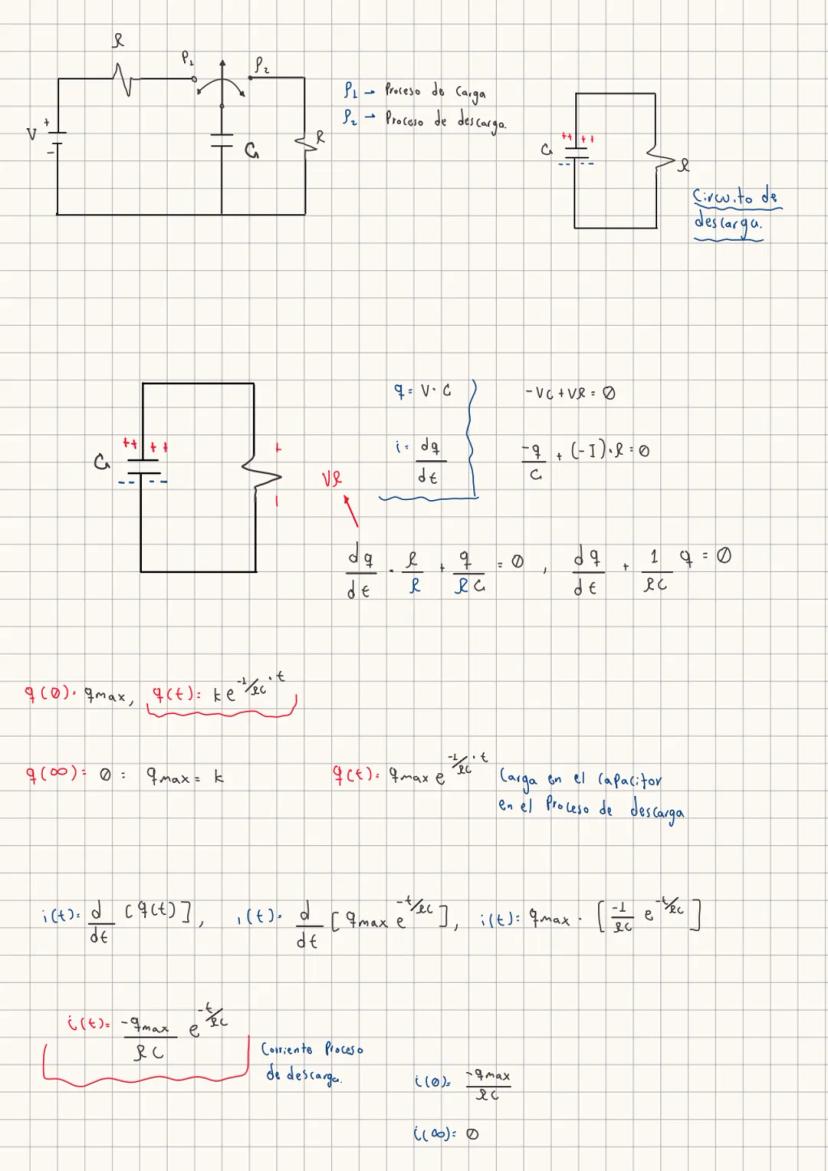 R P₁ P₂
P₁ → Proceso de Carga
P₂ → Proceso de descarga.
V + - C R
++ ++ C -- -- R
Circuito de
descarga.
q = V · C
-VC + VR = 0
++ ++ C -- -- + -
i = dq/dt
-q/C + (-I)·R = 0
VR
dq/dt · R/R + q/RC = 0 , dq/dt + 1/RC q = 0
q(0) = qmax, q(t) = k e^(-1/RC · t)
q(∞) = 0 : qmax = k
q(t) = qmax e^(-1/RC · t)
Carga en el Capacitor
en el Proceso de descarga
i(t) = d/dt [q(t)], i(t) = d/dt [qmax e^(-t/RC)], i(t) = qmax · [-1/RC e^(-t/RC)]
i(t) = -qmax/RC e^(-t/RC)
Corriente Proceso
de descarga.
i(0) = -qmax/RC
i(∞) = 0